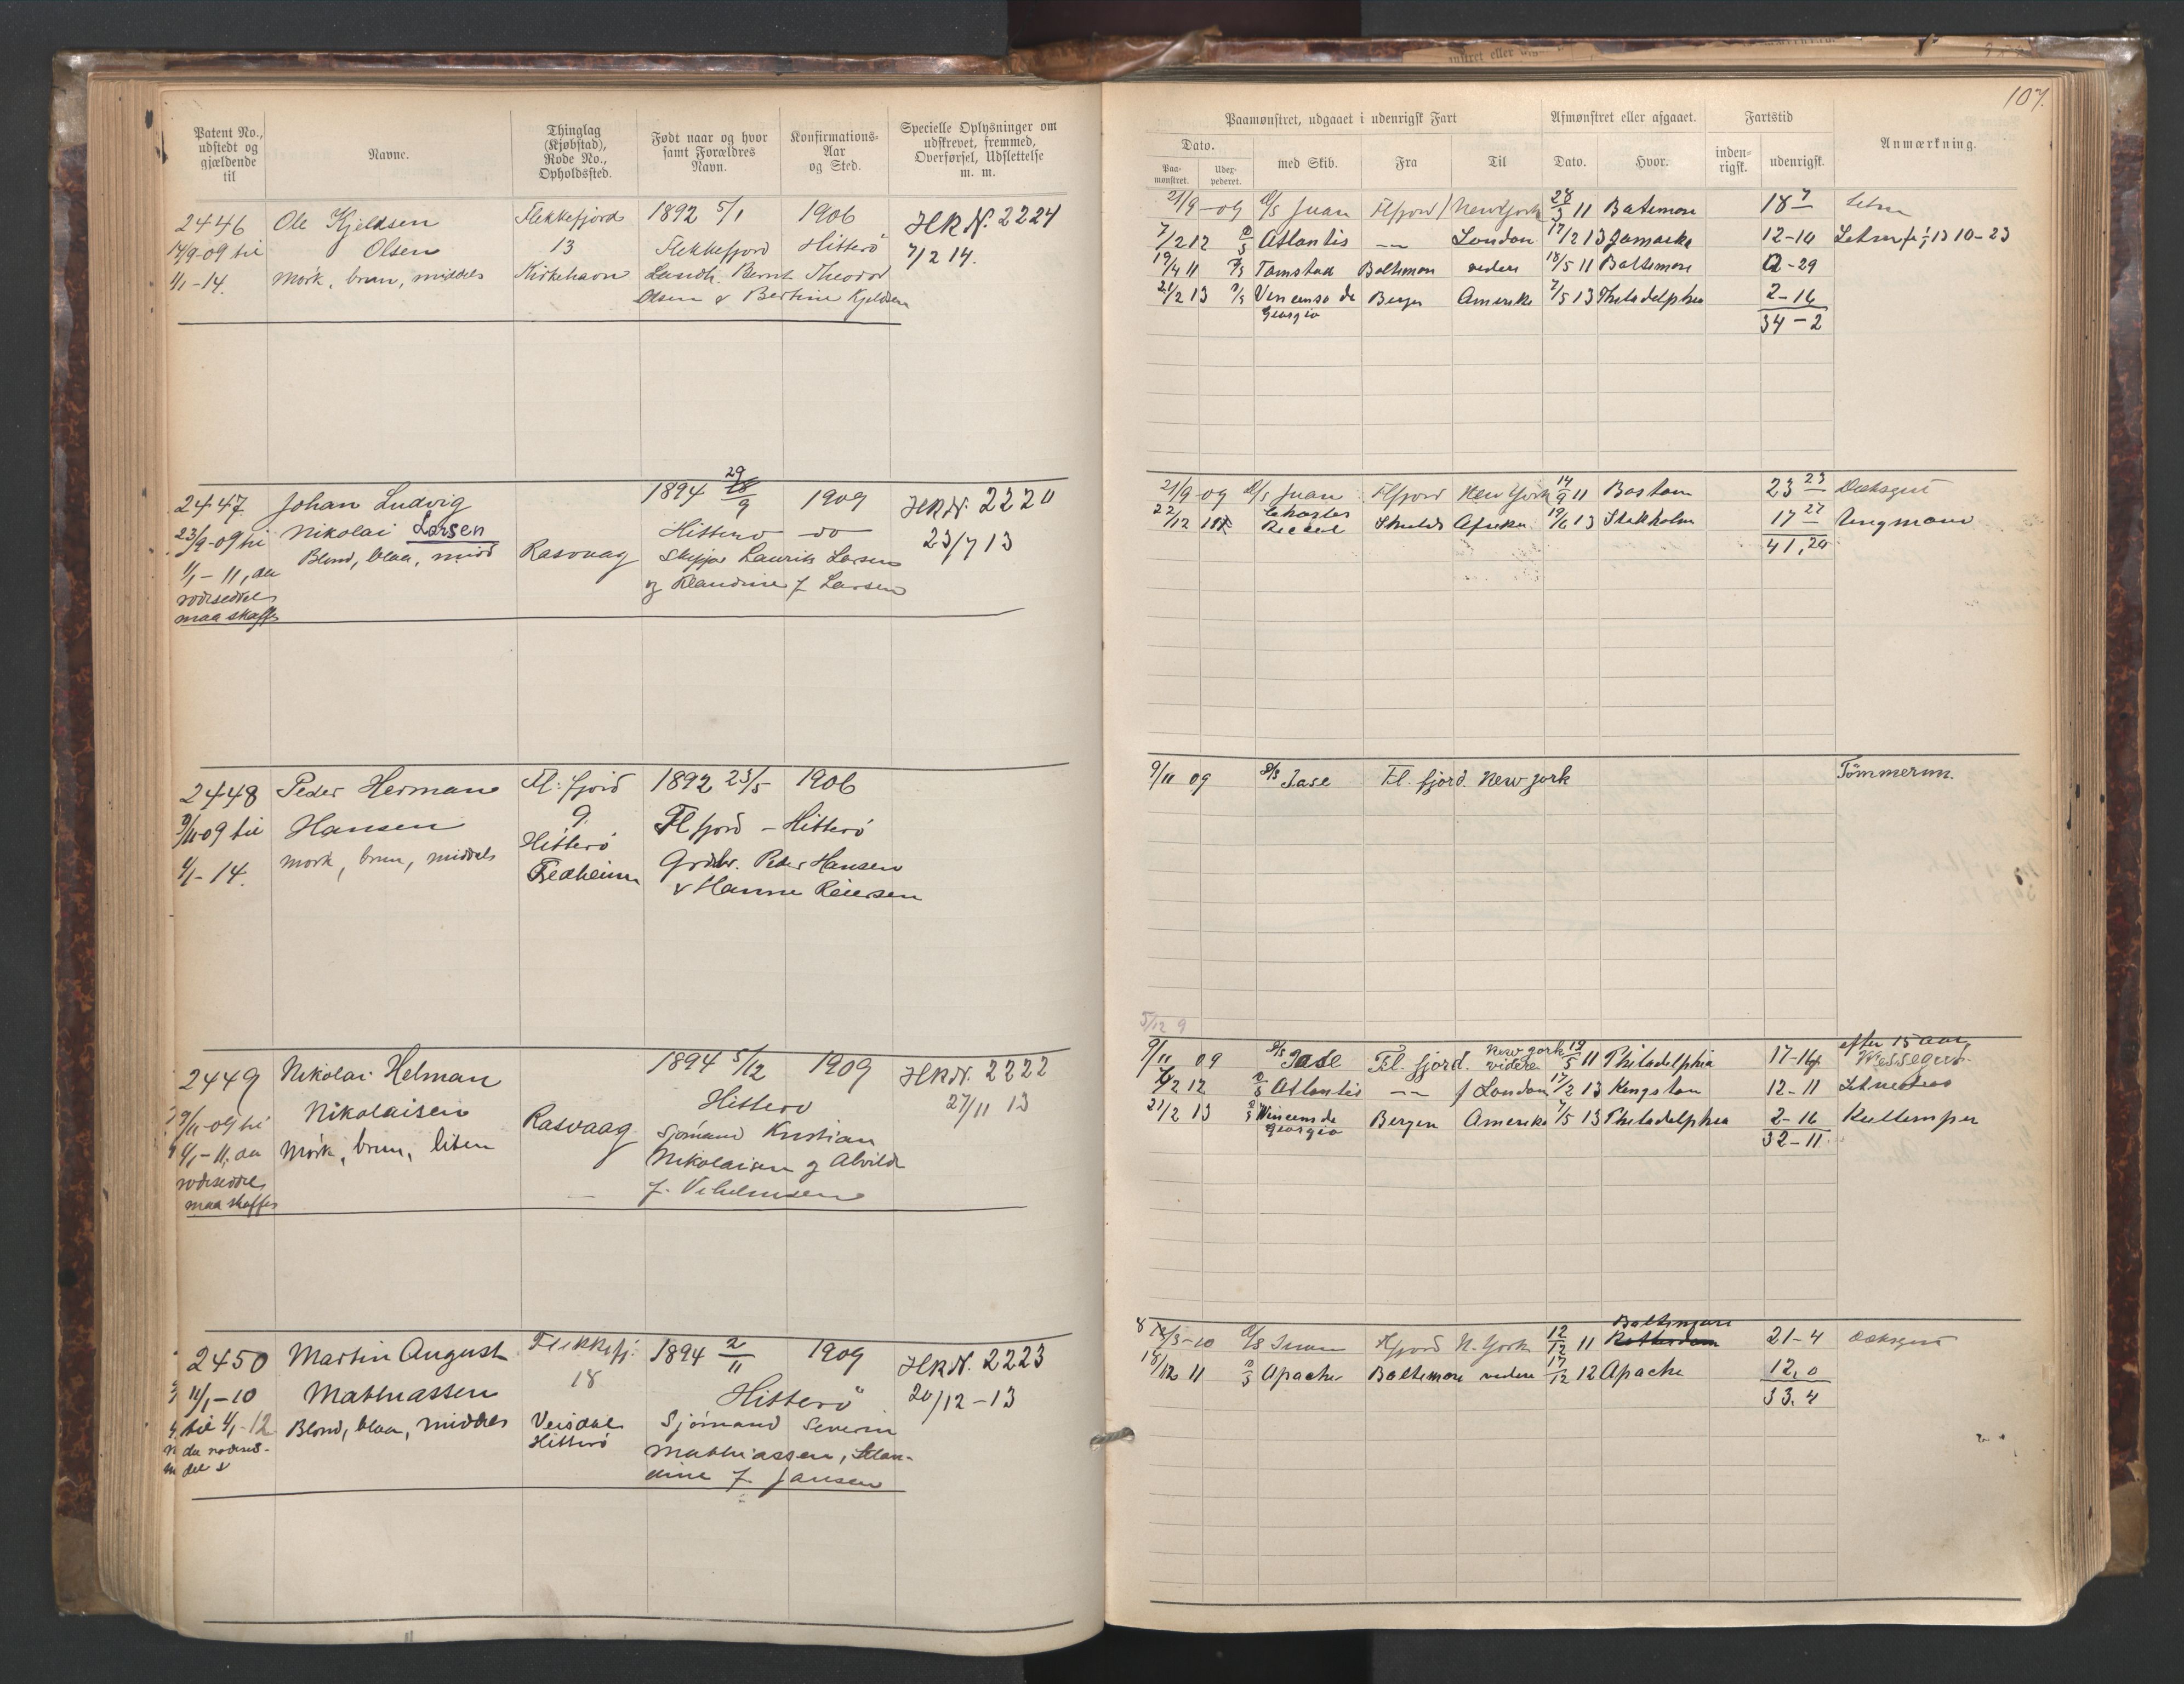 107.
Patent No., udstedt og gjældende til
Navne.
Thinglag (Kjøbstad), Rode No., Opholdssted.
Født naar og hvor samt Forældres Navn.
Konfirmations-Aar og Sted.
Specielle Oplysninger om udskrevet, fremmed, Overførsel, Udslettelse m. m.
Paamønstret, udgaaet i udenrigsk Fart
Afmønstret eller afgaaet.
Fartstid
Anmærkning.
Dato.
Paa-mønstret.
Udex-pederet.
med Skib.
Fra
Til
Dato.
Hvor.
inden-rigsk.
udenrigsk.
2446 Ole Kjeldsen Flekkefjord 1892 5/1 1906 HRN. 2224
14/9-09 til Olsen 13 Flekkefjord Hitterö 7/2 14.
1/1-14. Mörk, brun, middels Kirkehavn Landh. Bernt Theodor
Olsen & Bertine Kjeldsen
21/9-09 D/S Juan Flfjord New York 28/3 11 Batimore 18 7
7/2 12 Atlantis London 17/2 13 Jamaika 12-10
19/4 11 Tamstad Baltimore videre 18/5 11 Baltimore 0-29
21/2 13 Vincenso de Georgio Bergen Amerika 7/5 13 Philadelphia 2-16
34-2
2447 Johan Ludvig 1894 29/9 1909 HRN. 2220
23/9-09 til Nikolai Larsen Hitterö do 23/7 13
1/1-11, da Blond, blaa, midd Rasvaag Skipper Laurits Larsen
rodeseddel og Klaudine f Larsen
maa skaffes
21/9-09 D/S Juan Flfjord New York 14/9 11 Boston 23 23 Dæksgut
22/12 11 Afrika 19/6 13 Stokholm 17 27 Ungmand
41,20
2448 Peder Herman Fl. fjord 1892 23/5 1906
9/11-09 til Hansen 9. Flfjord - Hitterö
1/1-14. mörk, brun, middels Hitterö Grdbr. Peder Hansen
Fedheim & Hanne Reiersen
9/11 09 S/S Jase Fl. fjord. New york Tömmerm.
5/12 9
2449 Nikolai Helman 1894 5/12 1909 HRN. 2222
9/11-09 til Nikolaisen Hitterö 27/11 13
1/1-11, da Mörk, brun, liten Rasvaag Sjömand Kristian
rodeseddel Nikolaisen og Alvilde
maa skaffes f. Vilelmsen
9/11 09 S/S Jase Fl. fjord. New york videre 19/5 11 Philadelphia 17-16 efter 15 aar,
7/2 12 Atlantis f London 17/2 13 Kingston 12-11
21/2 13 Vincens de Georgio Bergen Amerika 7/5 13 Philadelphia 2-16 Kullemper
32-11
2450 Martin August Flekkefj. 1894 2/11 1909 HRN. 2223
11/1-10 Mathiassen 18 Hitterö 20/12-13
til 1/1-12 Blond, blaa, middels Veisdal Sjömand Severin
da rodesed- Hitterö Mathiassen, Klau-
del dine f. Jansen
12/3-10 D/S Juan Flfjord N. York 12/12 11 Baltimore 21-4 Dæksgut
18/12 11 Apache Baltimore videre 17/12 12 Apache 12,0
33.4